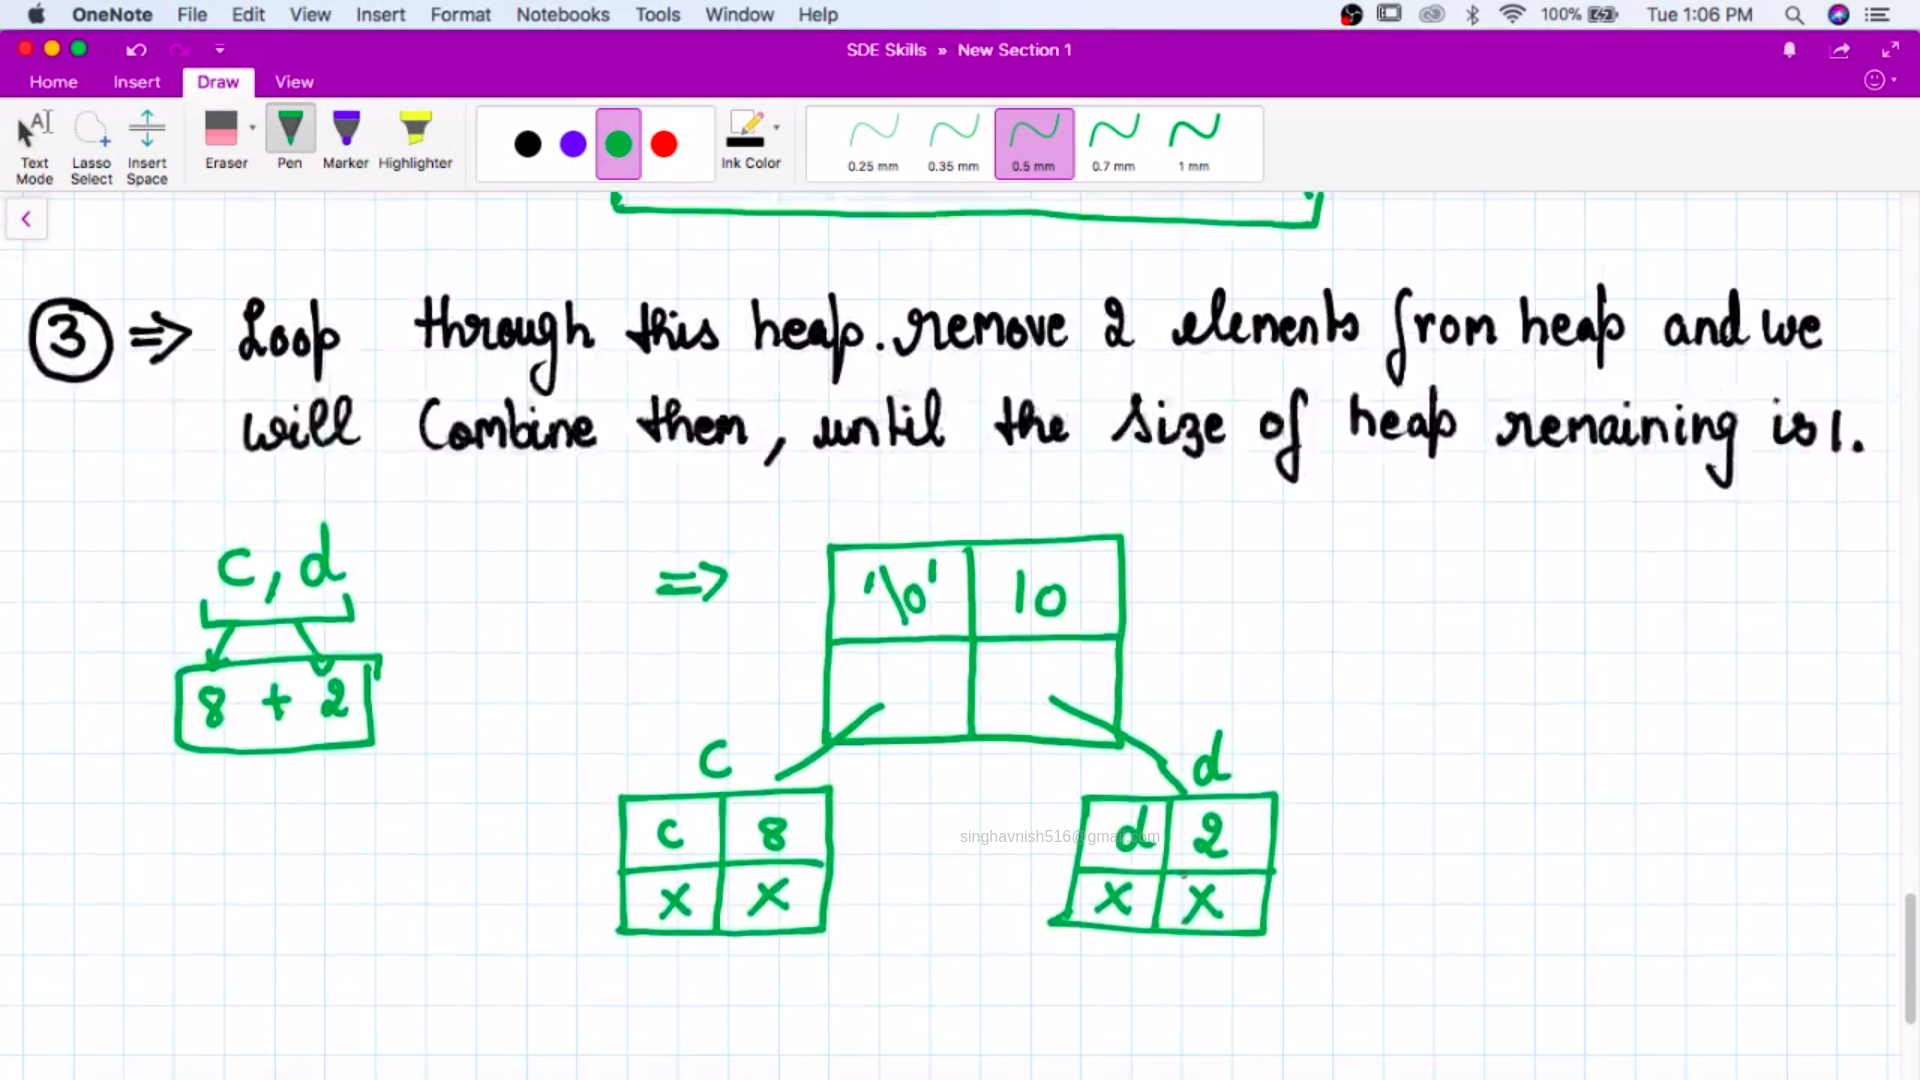 OneNote File Edit View Insert Format Notebooks Tools Window Help 100% Tue 1:06 PM
SDE Skills » New Section 1
Home Insert Draw View
Text Mode Lasso Select Insert Space Eraser Pen Marker Highlighter Ink Color 0.25 mm 0.35 mm 0.5 mm 0.7 mm 1 mm
③ => Loop through this heap. remove 2 elements from heap and we
will Combine them, until the size of heap remaining is 1.
c, d => '\0' 10
8 + 2
c d
c 8 d 2
singhavnish516@gmail.com
x x x x